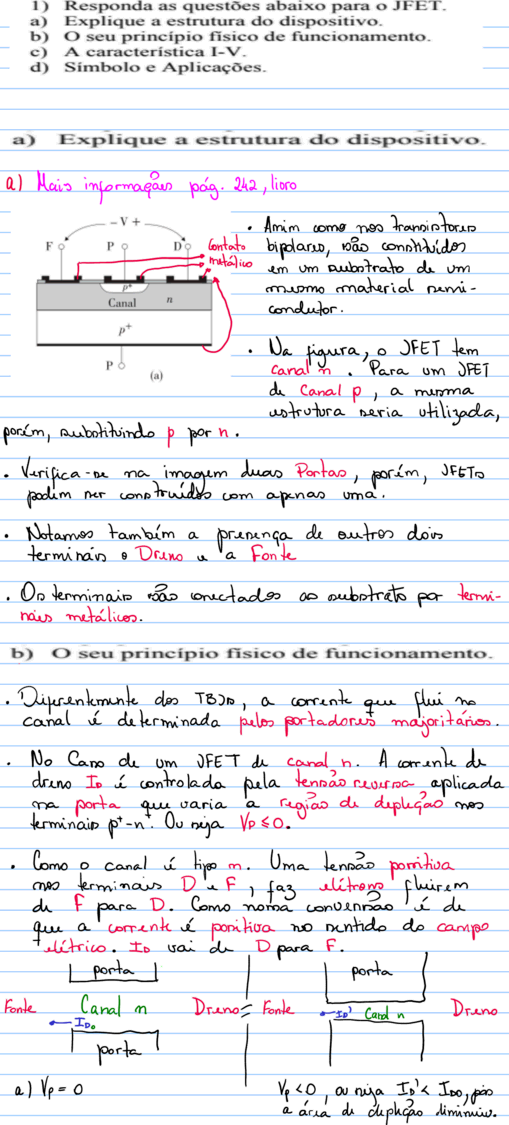 1) Responda as questões abaixo para o JFET.
a) Explique a estrutura do dispositivo.
b) O seu princípio físico de funcionamento.
c) A característica I-V.
d) Símbolo e Aplicações.
a) Explique a estrutura do dispositivo.
a) Mais informações pág. 242, livro
− V +
F P D
Contato
metálico
p+
Canal n
p+
P
(a)
• Assim como nos transistores
bipolares, são constituídos
em um substrato de um
mesmo material semi-
condutor.
• Na figura, o JFET tem
canal n. Para um JFET
de Canal p, a mesma
estrutura seria utilizada,
porém, substituindo p por n.
• Verifica-se na imagem duas Portas, porém, JFETs
podem ser construídos com apenas uma.
• Notamos também a presença de outros dois
terminais o Dreno e a Fonte
• Os terminais são conectados ao substrato por termi-
nais metálicos.
b) O seu princípio físico de funcionamento.
• Diferentemente dos TBJs, a corrente que flui no
canal é determinada pelos portadores majoritários.
• No Caso de um JFET de canal n. A corrente de
dreno ID é controlada pela tensão reversa aplicada
na porta que varia a região de depleção nos
terminais p+-n. Ou seja VP ≤ 0.
• Como o canal é tipo n. Uma tensão positiva
nos terminais D e F, faz elétrons fluirem
de F para D. Como nossa convensão é de
que a corrente é positiva no sentido do campo
elétrico. ID vai de D para F.
porta porta
Fonte Canal n Dreno Fonte ID' Canal n Dreno
← ID0
porta
a) VP = 0 VP < 0, ou seja ID' < ID0, pois
a área de depleção diminuiu.